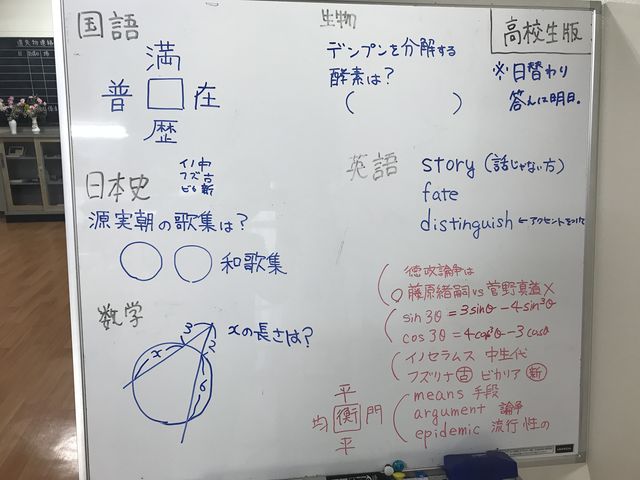 国語
満
普 □ 在
歴
日本史
イノ中
フズ古
ビカ新
源実朝の歌集は?
○○和歌集
数学
xの長さは?
3
2
x
6
生物
デンプンを分解する
酵素は?
( )
高校生版
※日替わり
答えは明日。
英語
story (話じゃない方)
fate
distinguish ←アクセントをつけて
徳政論争は
○藤原緒嗣 vs 菅野真道×
sin3θ = 3sinθ - 4sin³θ
cos3θ = 4cos³θ - 3cosθ
イノセラムス 中生代
フズリナ 古 ビカリア 新
means 手段
argument 論争
epidemic 流行性の
平
均 衡 門
平